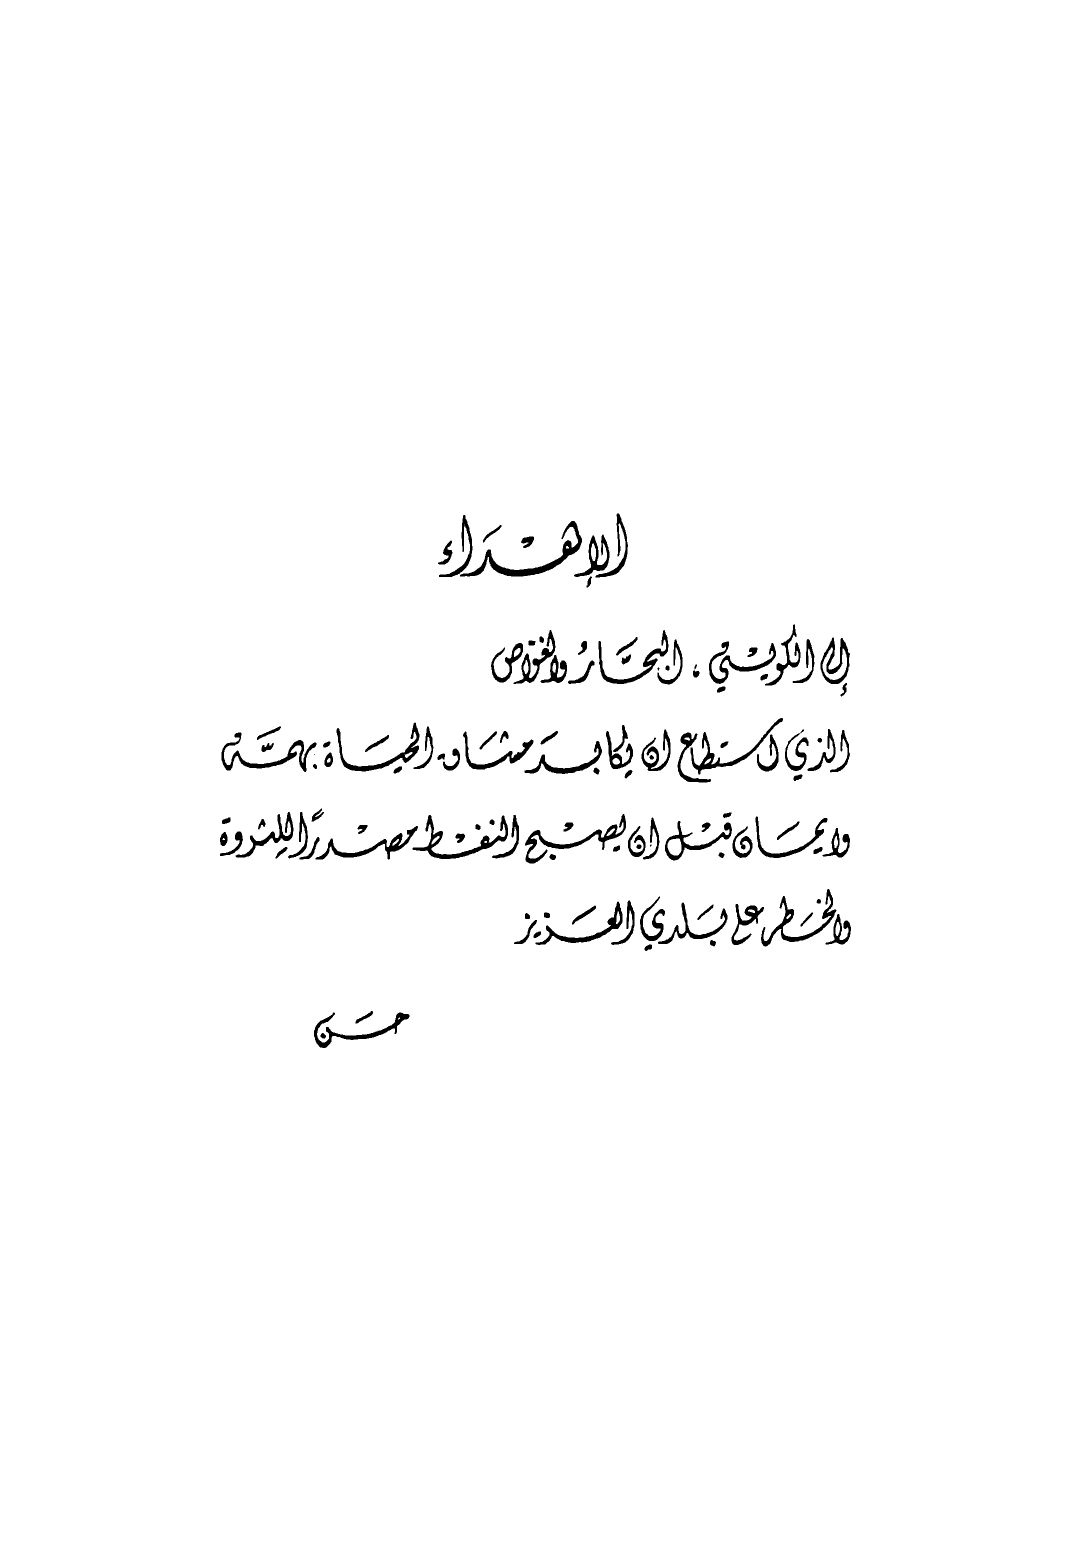 الإهداء
إلى الكويتي، البحَّارُ والغوّاص
الذي استطاع ان يكابد مشاق الحياة بهمّة
وايمان قبل ان يصبح النفط مصدرًا للثروة
والخطر على بلدي العزيز
حسن